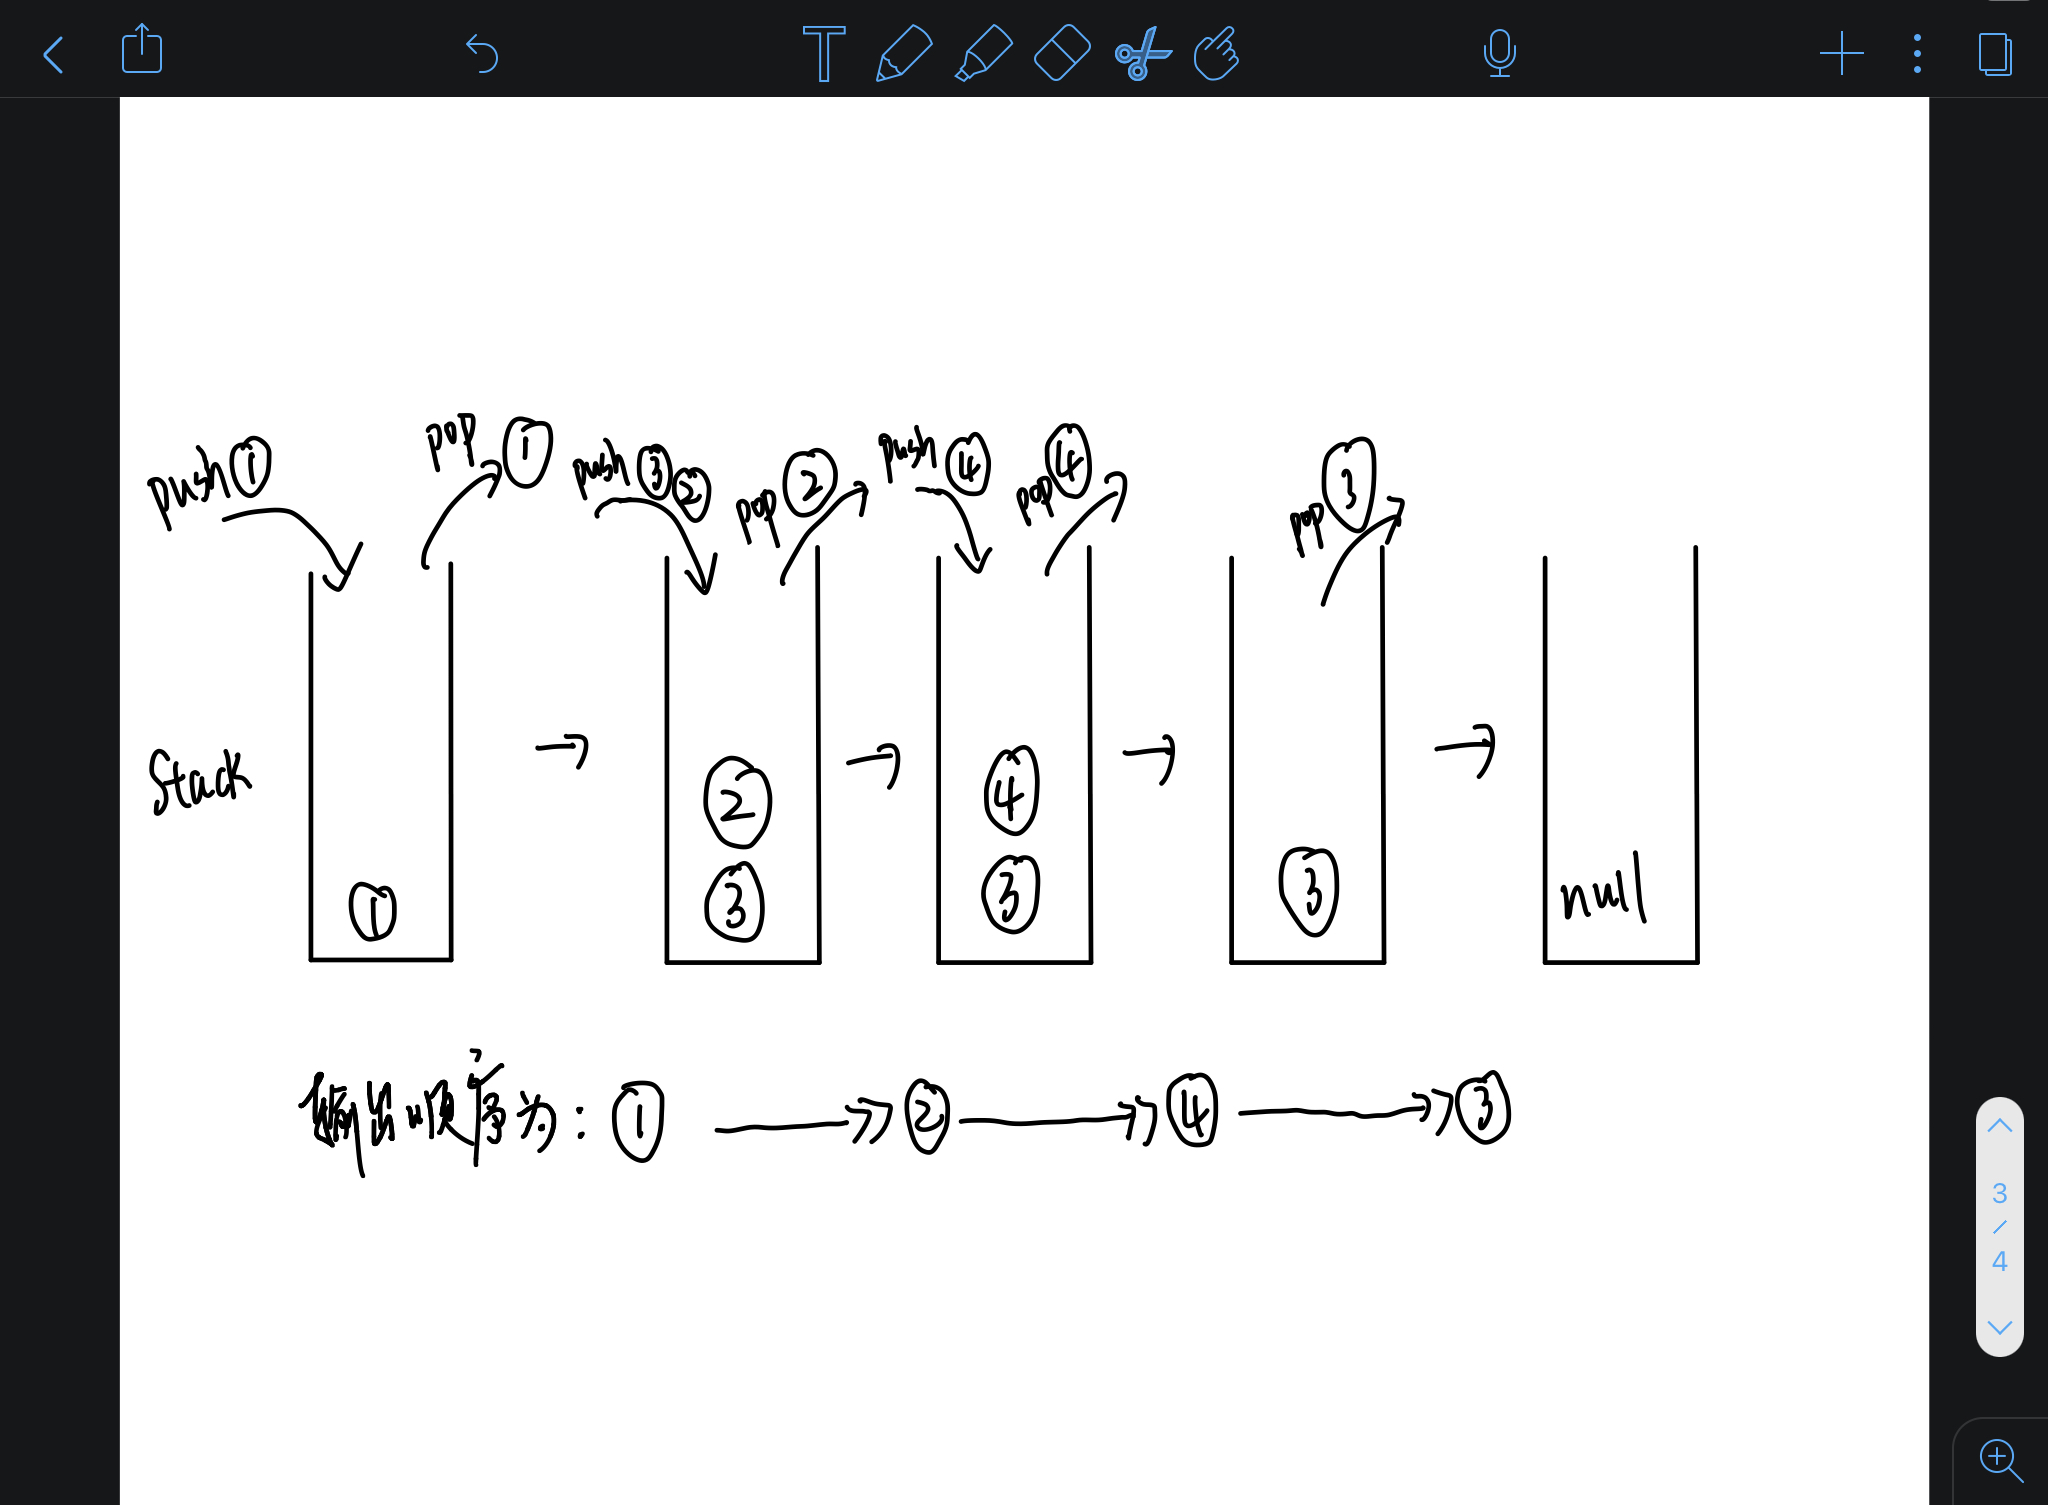 push ① pop ① push ③ ② pop ② push ④ pop ④ pop ③
Stack
① ② ③ ④ ③ ③ null
输出顺序为: ① ② ④ ③
3
4